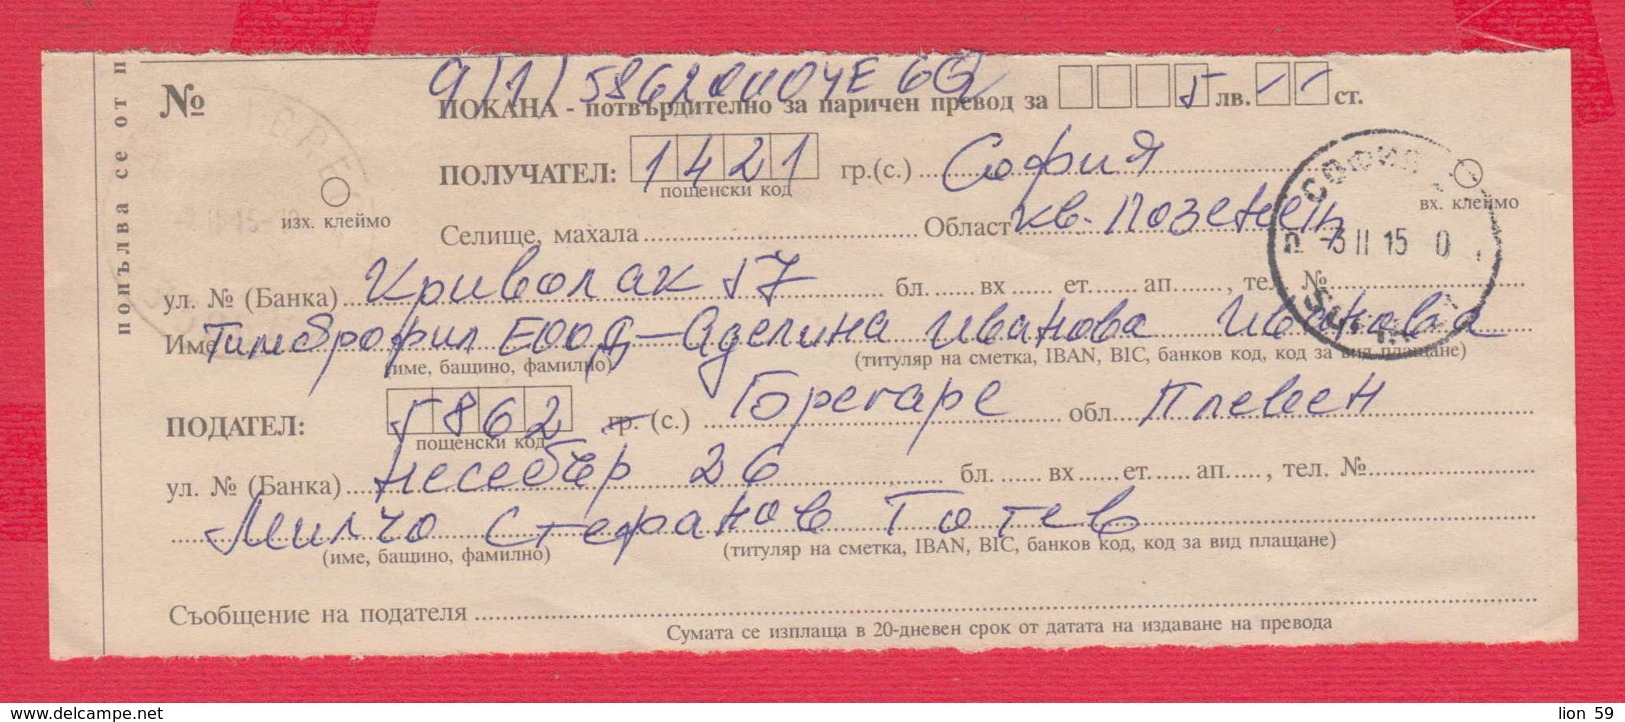 9/1/586201104E6G
№ ПОКАНА - потвърдително за паричен превод за 5 лв. -- ст.
ПОЛУЧАТЕЛ: 1421 гр.(с.) София
пощенски код
изх. клеймо
вх. клеймо
Селище, махала Област кв. Лозенец
ул. № (Банка) Криволак 57 бл. вх ет. ап. , тел №
Име Тимброфил ЕООД - Аделина Иванова Иванова
(име, бащино, фамилно) (титуляр на сметка, IBAN, BIC, банков код, код за вид плащане)
ПОДАТЕЛ: 5862 гр. (с.) Гореgаре обл Плевен
пощенски код
ул. № (Банка) Несебър 26 бл. вх ет. ап. , тел. №
Милчо Стефанов Готев
(име, бащино, фамилно) (титуляр на сметка, IBAN, BIC, банков код, код за вид плащане)
Съобщение на подателя
Сумата се изплаща в 20-дневен срок от датата на издаване на превода
попълва се от п
СОФИЯ
-3 II 15 0
lion 59